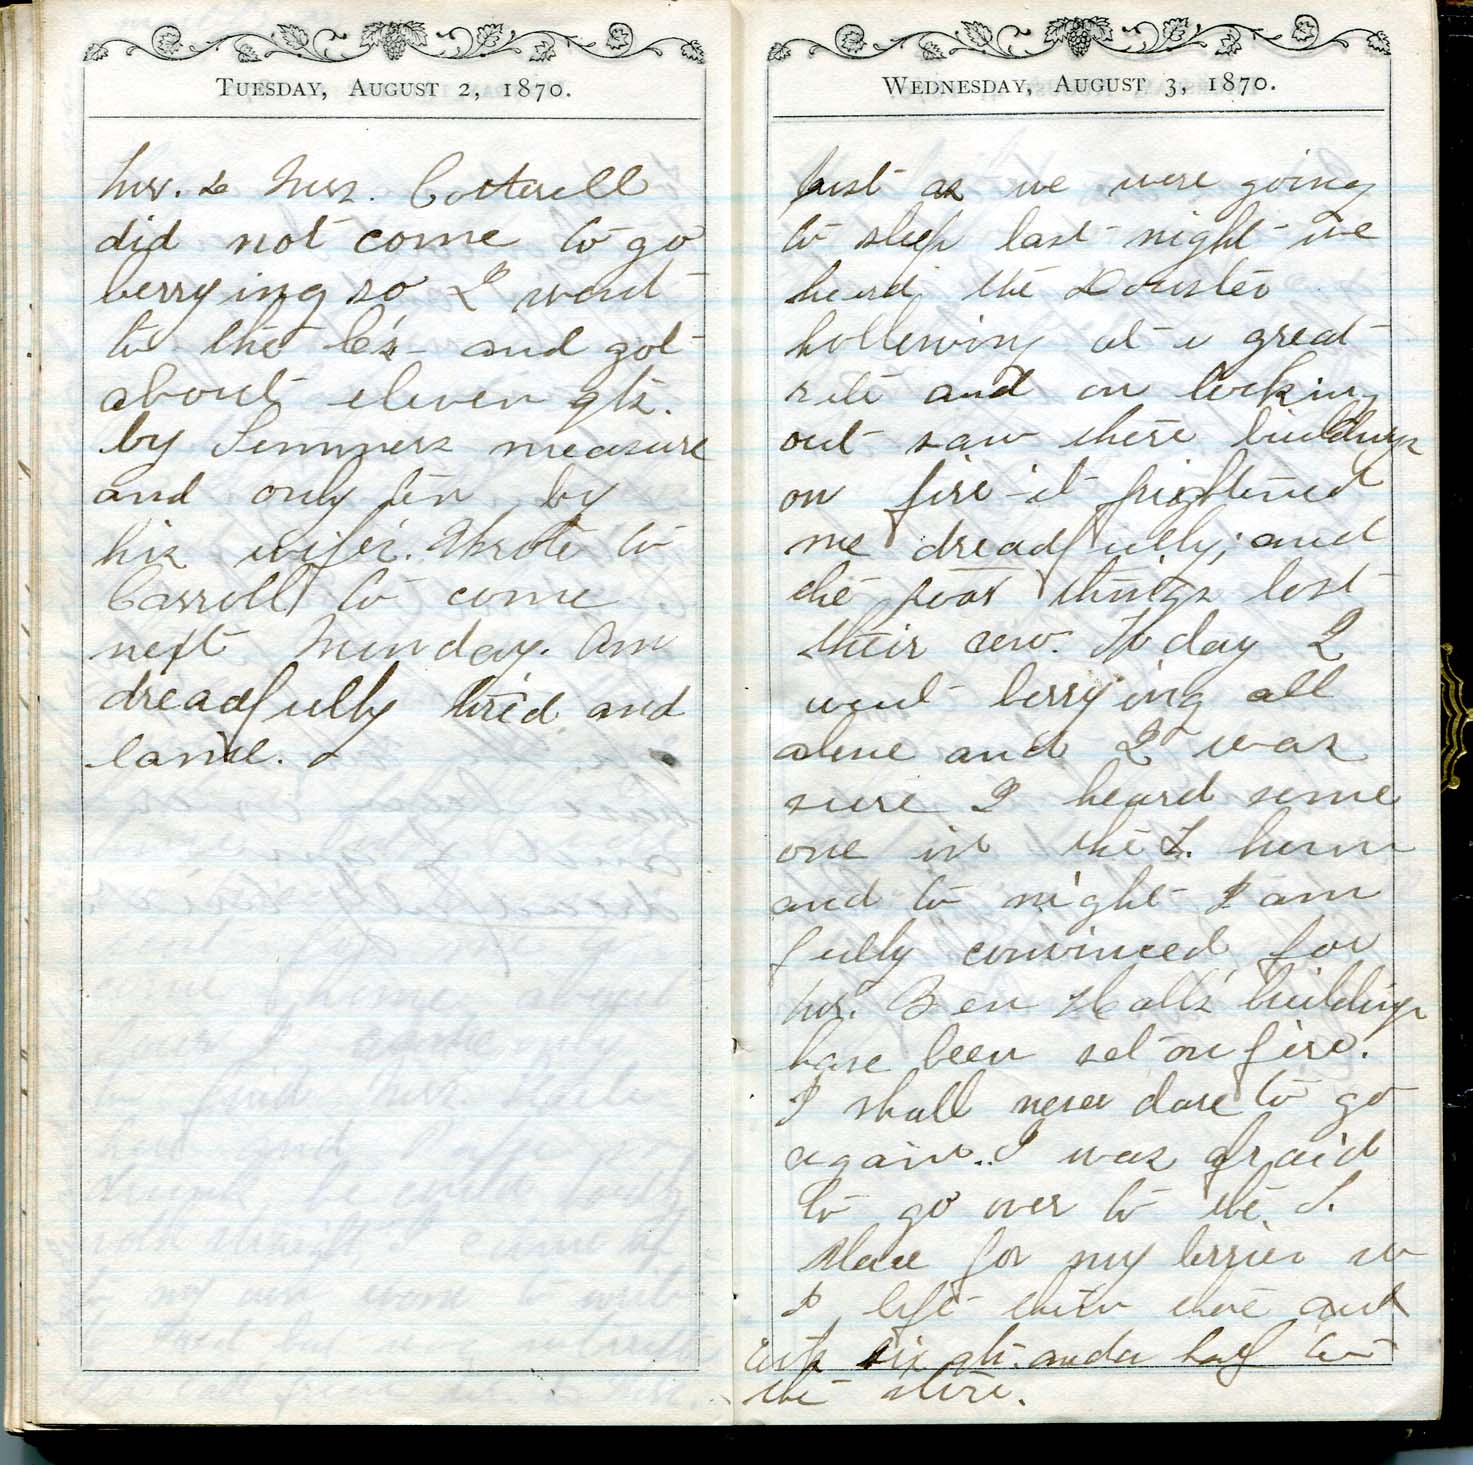 TUESDAY, AUGUST 2, 1870.
Mr. & Mrs. Cotterell
did not come to go
berrying so I went
to the C's and got
about eleven qts.
by Sumners measure
and only ten by
his wife's. Wrote to
Carroll to come
next Monday. Am
dreadfully tired and
lame.
WEDNESDAY, AUGUST 3, 1870.
Just as we were going
to sleep last night we
heard the
hollering at a great
rate and on looking
out saw there buildings
on fire - it frightened
me dreadfully; and
the poor things lost
their cow. To day I
went berrying all
alone and I was
sure I heard some
one in the L. barn
and to night I am
fully convinced for
Mr. Ben Hall's buildings
have been set on fire.
I shall never dare to go
again. I was afraid
to go over to the L.
place for my berries so
I left them there and
six qts. and a half to
the store.